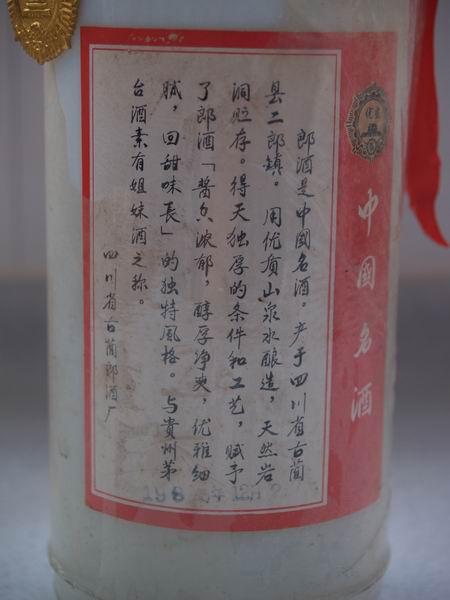 郎酒是中國名酒。产于四川省古蔺
县二郎鎮。用优质山泉水酿造，天然岩
洞贮存。得天独厚的条件和工艺，赋予
了郎酒「醬香浓郁，醇厚净爽，优雅细
腻，回甜味長」的独特風格。与貴州茅
台酒素有姐妹酒之称。
四川省古蔺郎酒厂
中國名酒